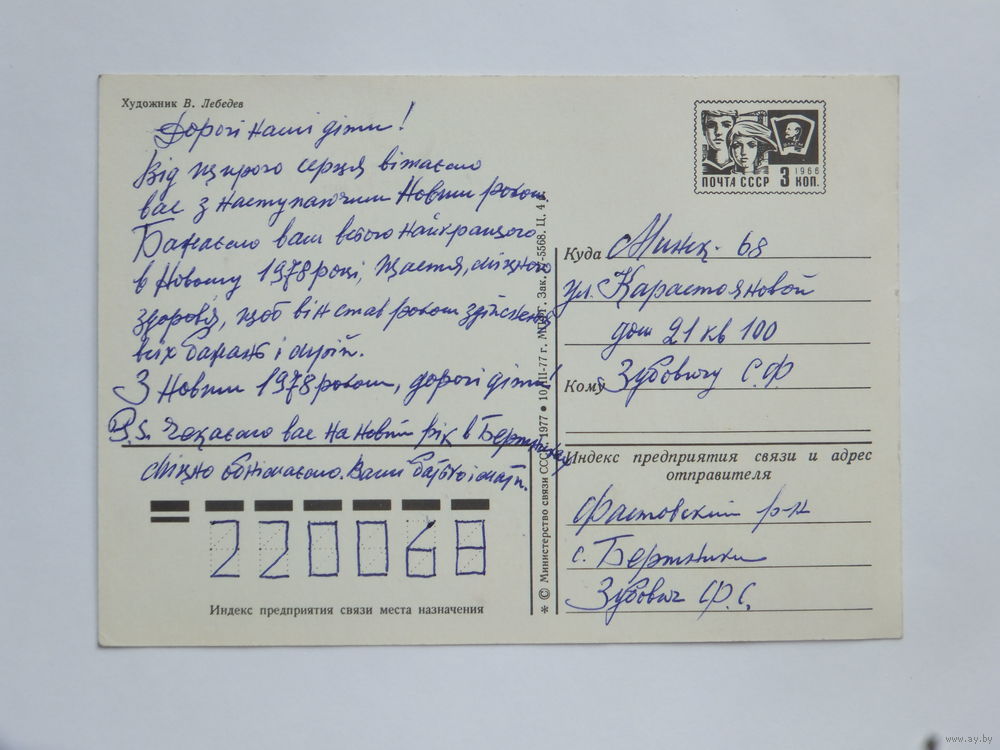 Художник В. Лебедев
Дорогі наші діти!
Від щирого серця вітаємо
вас з наступаючим Новим роком.
Бажаємо вам всього найкращого
в Новому 1978 році, щастя, міцного
здоров'я, щоб він став роком здійснення
всіх бажань і мрій.
З Новим 1978 роком, дорогі діти!
P.S. Чекаємо вас на новий рік в
Міцно обнімаємо. Ваші батько і мати.
220068
Индекс предприятия связи места назначения
* © Министерство связи СССР. 1977 • 10. III-77 г. МПФГ. Зак. 5568. Ц. 4 к.
ПОЧТА СССР 3 КОП. 1966
ВЛКСМ
Куда Минск-68
ул. Карастояновой
дом 21 кв 100
Кому Зубовичу С.Ф
Индекс предприятия связи и адрес
отправителя
Фастовский р-н
с.
Зубович Ф.С.
www.ay.by